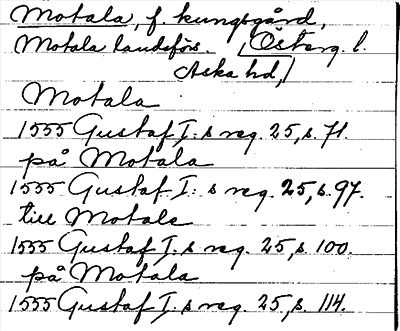 Motala, f. kungsgård,
Motala landsförs. (Österg. l.
Aska hd,)
Motala
1555 Gustaf I:s reg. 25, s. 71.
på Motala
1555 Gustaf I:s reg. 25, s. 97.
till Motala
1555 Gustaf I:s reg. 25, s. 100.
på Motala
1555 Gustaf I:s reg. 25, s. 114.